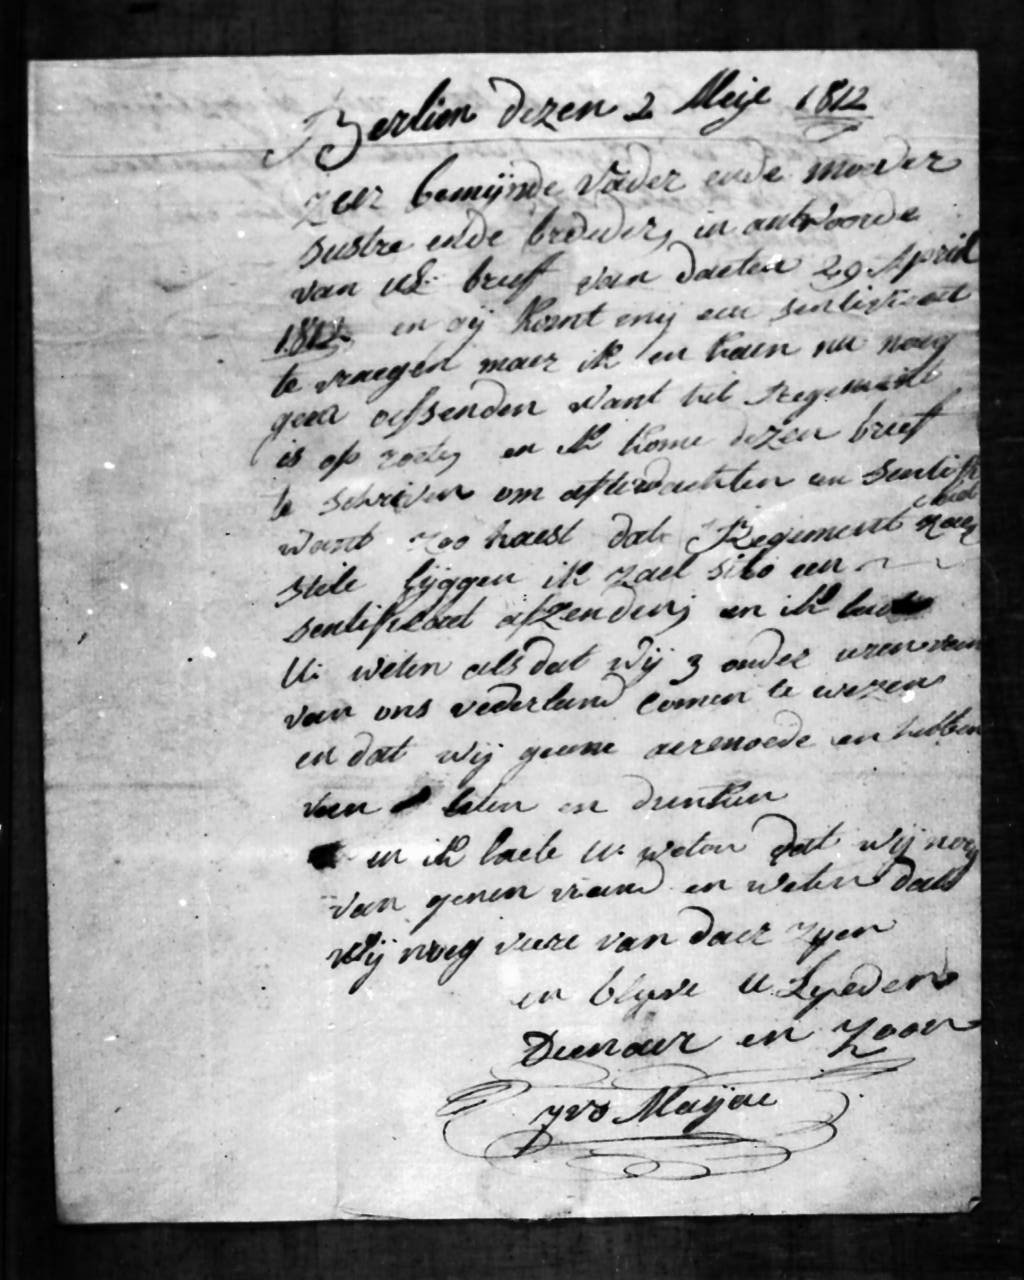 Berlien dezen 2 Meije 1812
zeer bemijnde vader ende moeder
sustre ende broeder, in antwoorde
van UL. brief van daeten 29 April
1812. en gij komt mij een sertificaet
te vraegen maer ik en kan nu noeg
geen afsenden want het Regement
is op roete, en ik kome dezen brief
te schriven om afterwachten en sentifi
want zoo haest dat Regement
stile liggen ik zael sito een
sentificaet afzenden, en ik laete
U: weten als dat wij 3 onder uren van
van ons vederland comen te wezen
en dat wij geene aermoede en hebben
van eeten en drinken
en ik laete U: weten dat wij noeg
van genen viand en weten dat
wij noeg verre van daer zijen
en blyve U. Lyeden
Dienaer en Zoon
yvo Maijou